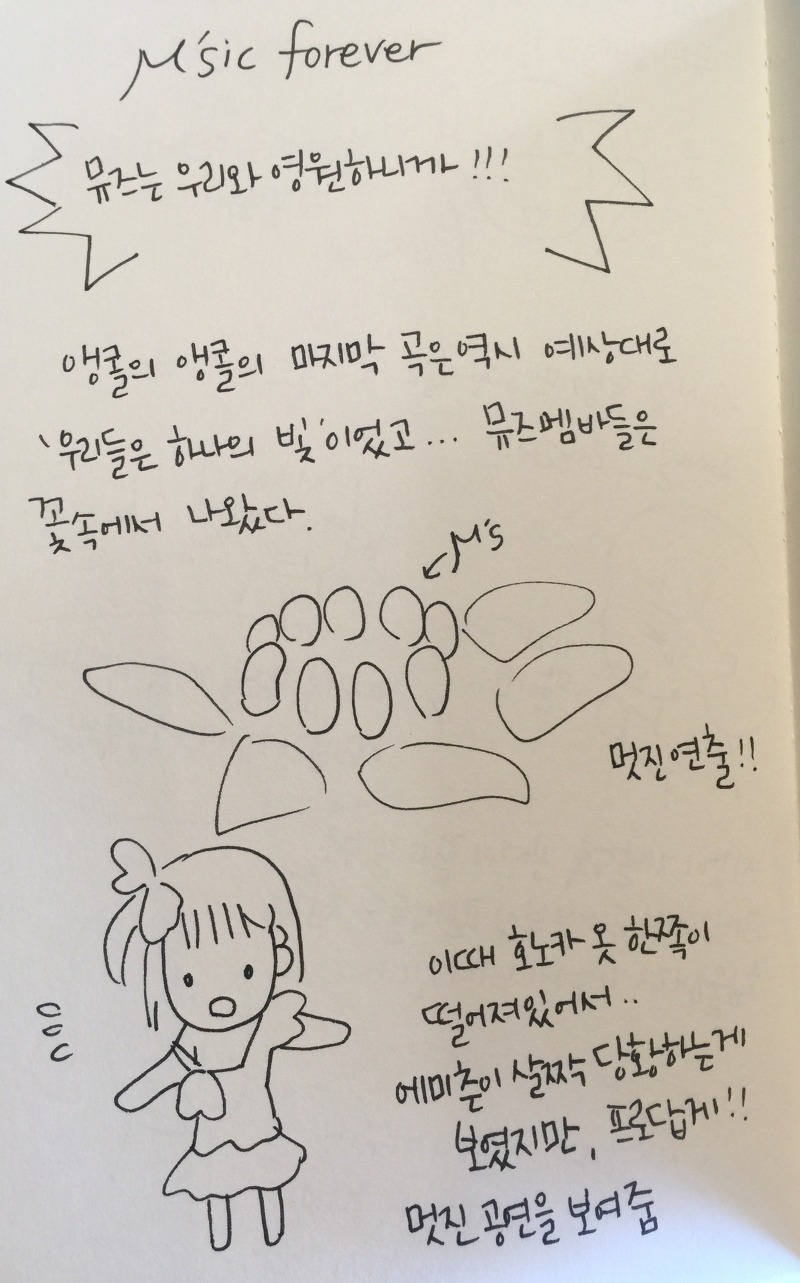 μ'sic forever
뮤즈는 우리와 영원하니까!!!
앵콜의 앵콜의 마지막 곡은 역시 예상대로
'우리들은 하나의 빛'이었고... 뮤즈멤바들은
꽃속에서 나왔다.
μ's
멋진 연출!!
이때 호노카 옷 한쪽이
떨어져있어서..
에미츤이 살짝 당황하는게
보였지만, 프로답게!!
멋진 공연을 보여줌